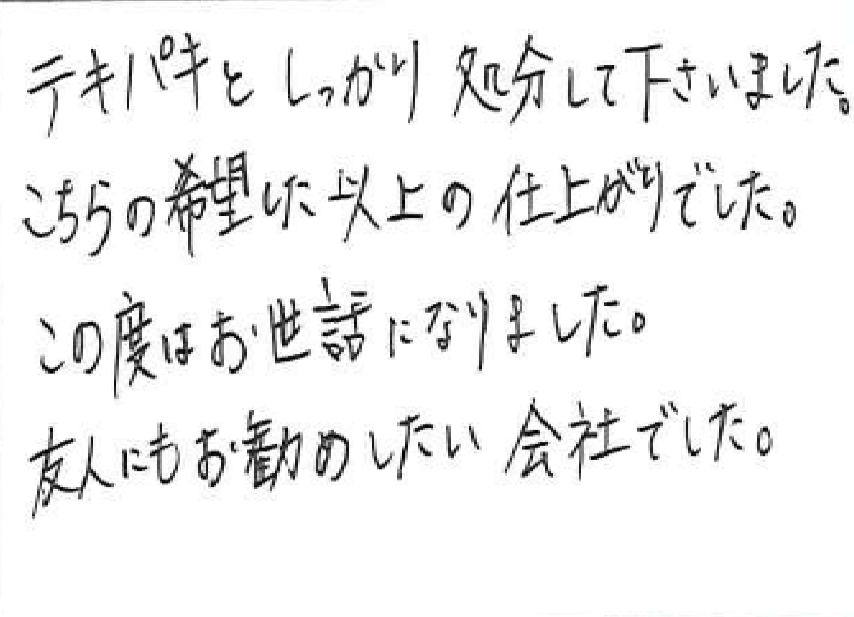 テキパキとしっかり処分して下さいました。
こちらの希望した以上の仕上がりでした。
この度はお世話になりました。
友人にもお勧めしたい会社でした。